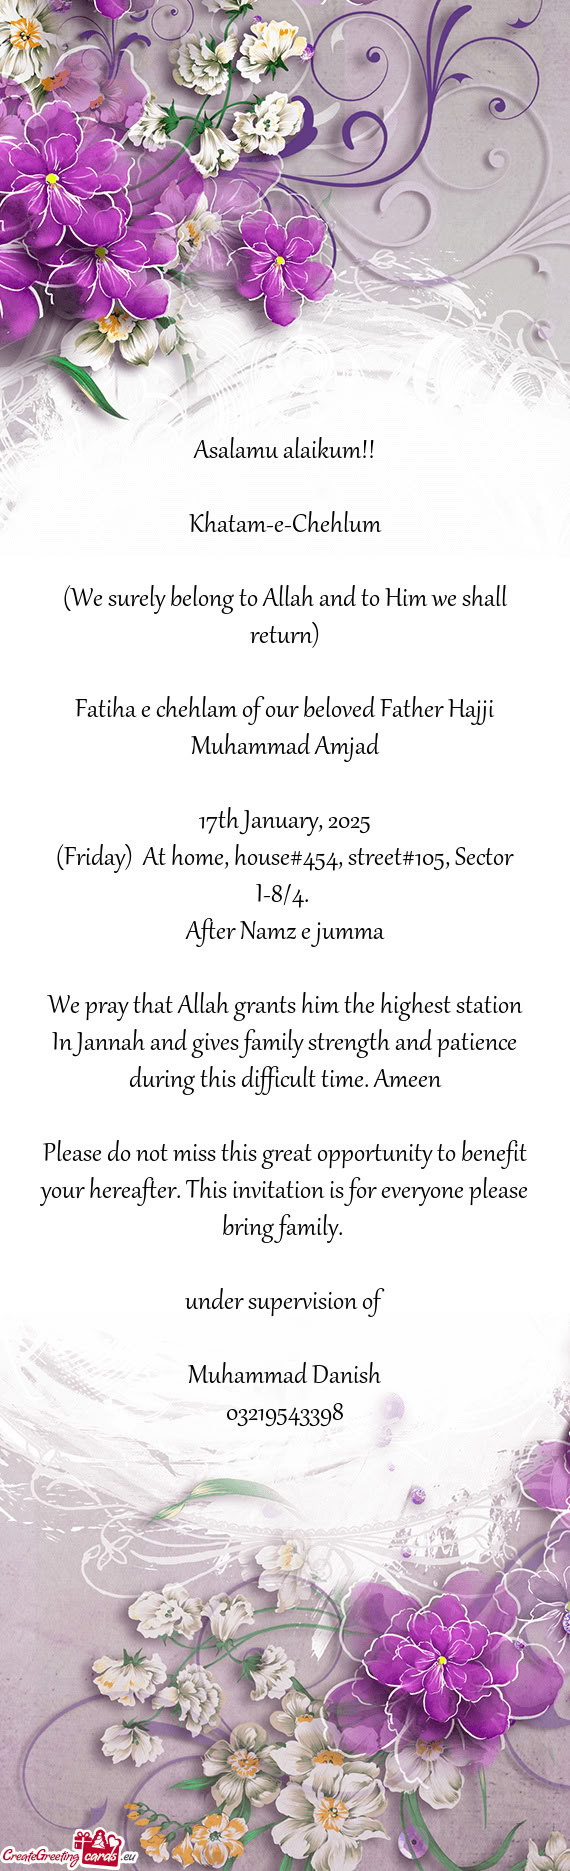 Asalamu alaikum!!
Khatam-e-Chehlum
(We surely belong to Allah and to Him we shall
return)
Fatiha e chehlam of our beloved Father Hajji
Muhammad Amjad
17th January, 2025
(Friday) At home, house#454, street#105, Sector
I-8/4.
After Namz e jumma
We pray that Allah grants him the highest station
In Jannah and gives family strength and patience
during this difficult time. Ameen
Please do not miss this great opportunity to benefit
your hereafter. This invitation is for everyone please
bring family.
under supervision of
Muhammad Danish
03219543398
CreateGreeting cards .eu